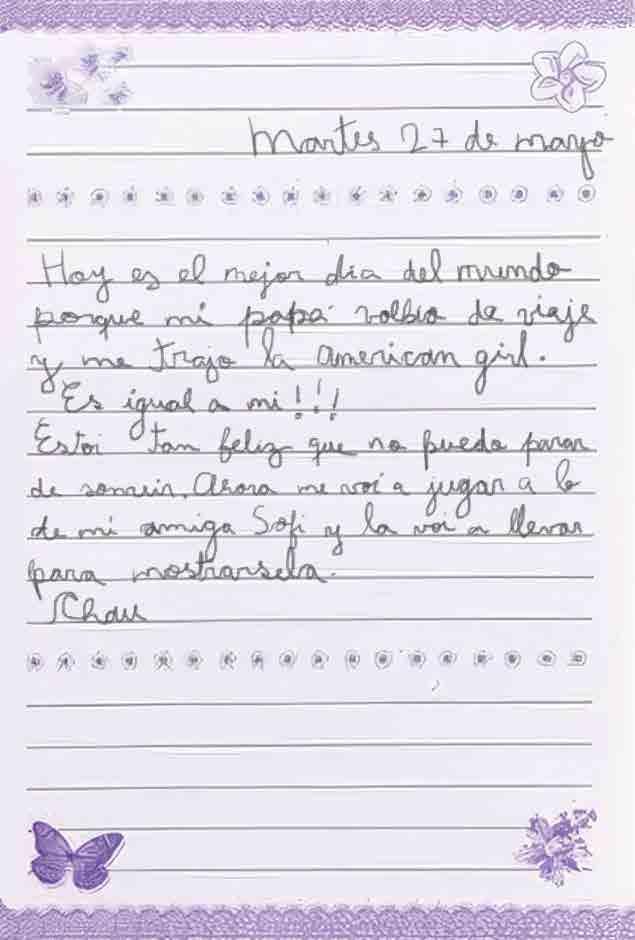 Martes 27 de mayo
Hoy es el mejor día del mundo
porque mi papá volbio de viaje
y me trajo la american girl.
Es igual a mi!!!
Estoi tan feliz que no puedo parar
de sonreir. Arora me voi a jugar a lo
de mi amiga Sofi y la voi a llevar
para mostrarsela.
Chau